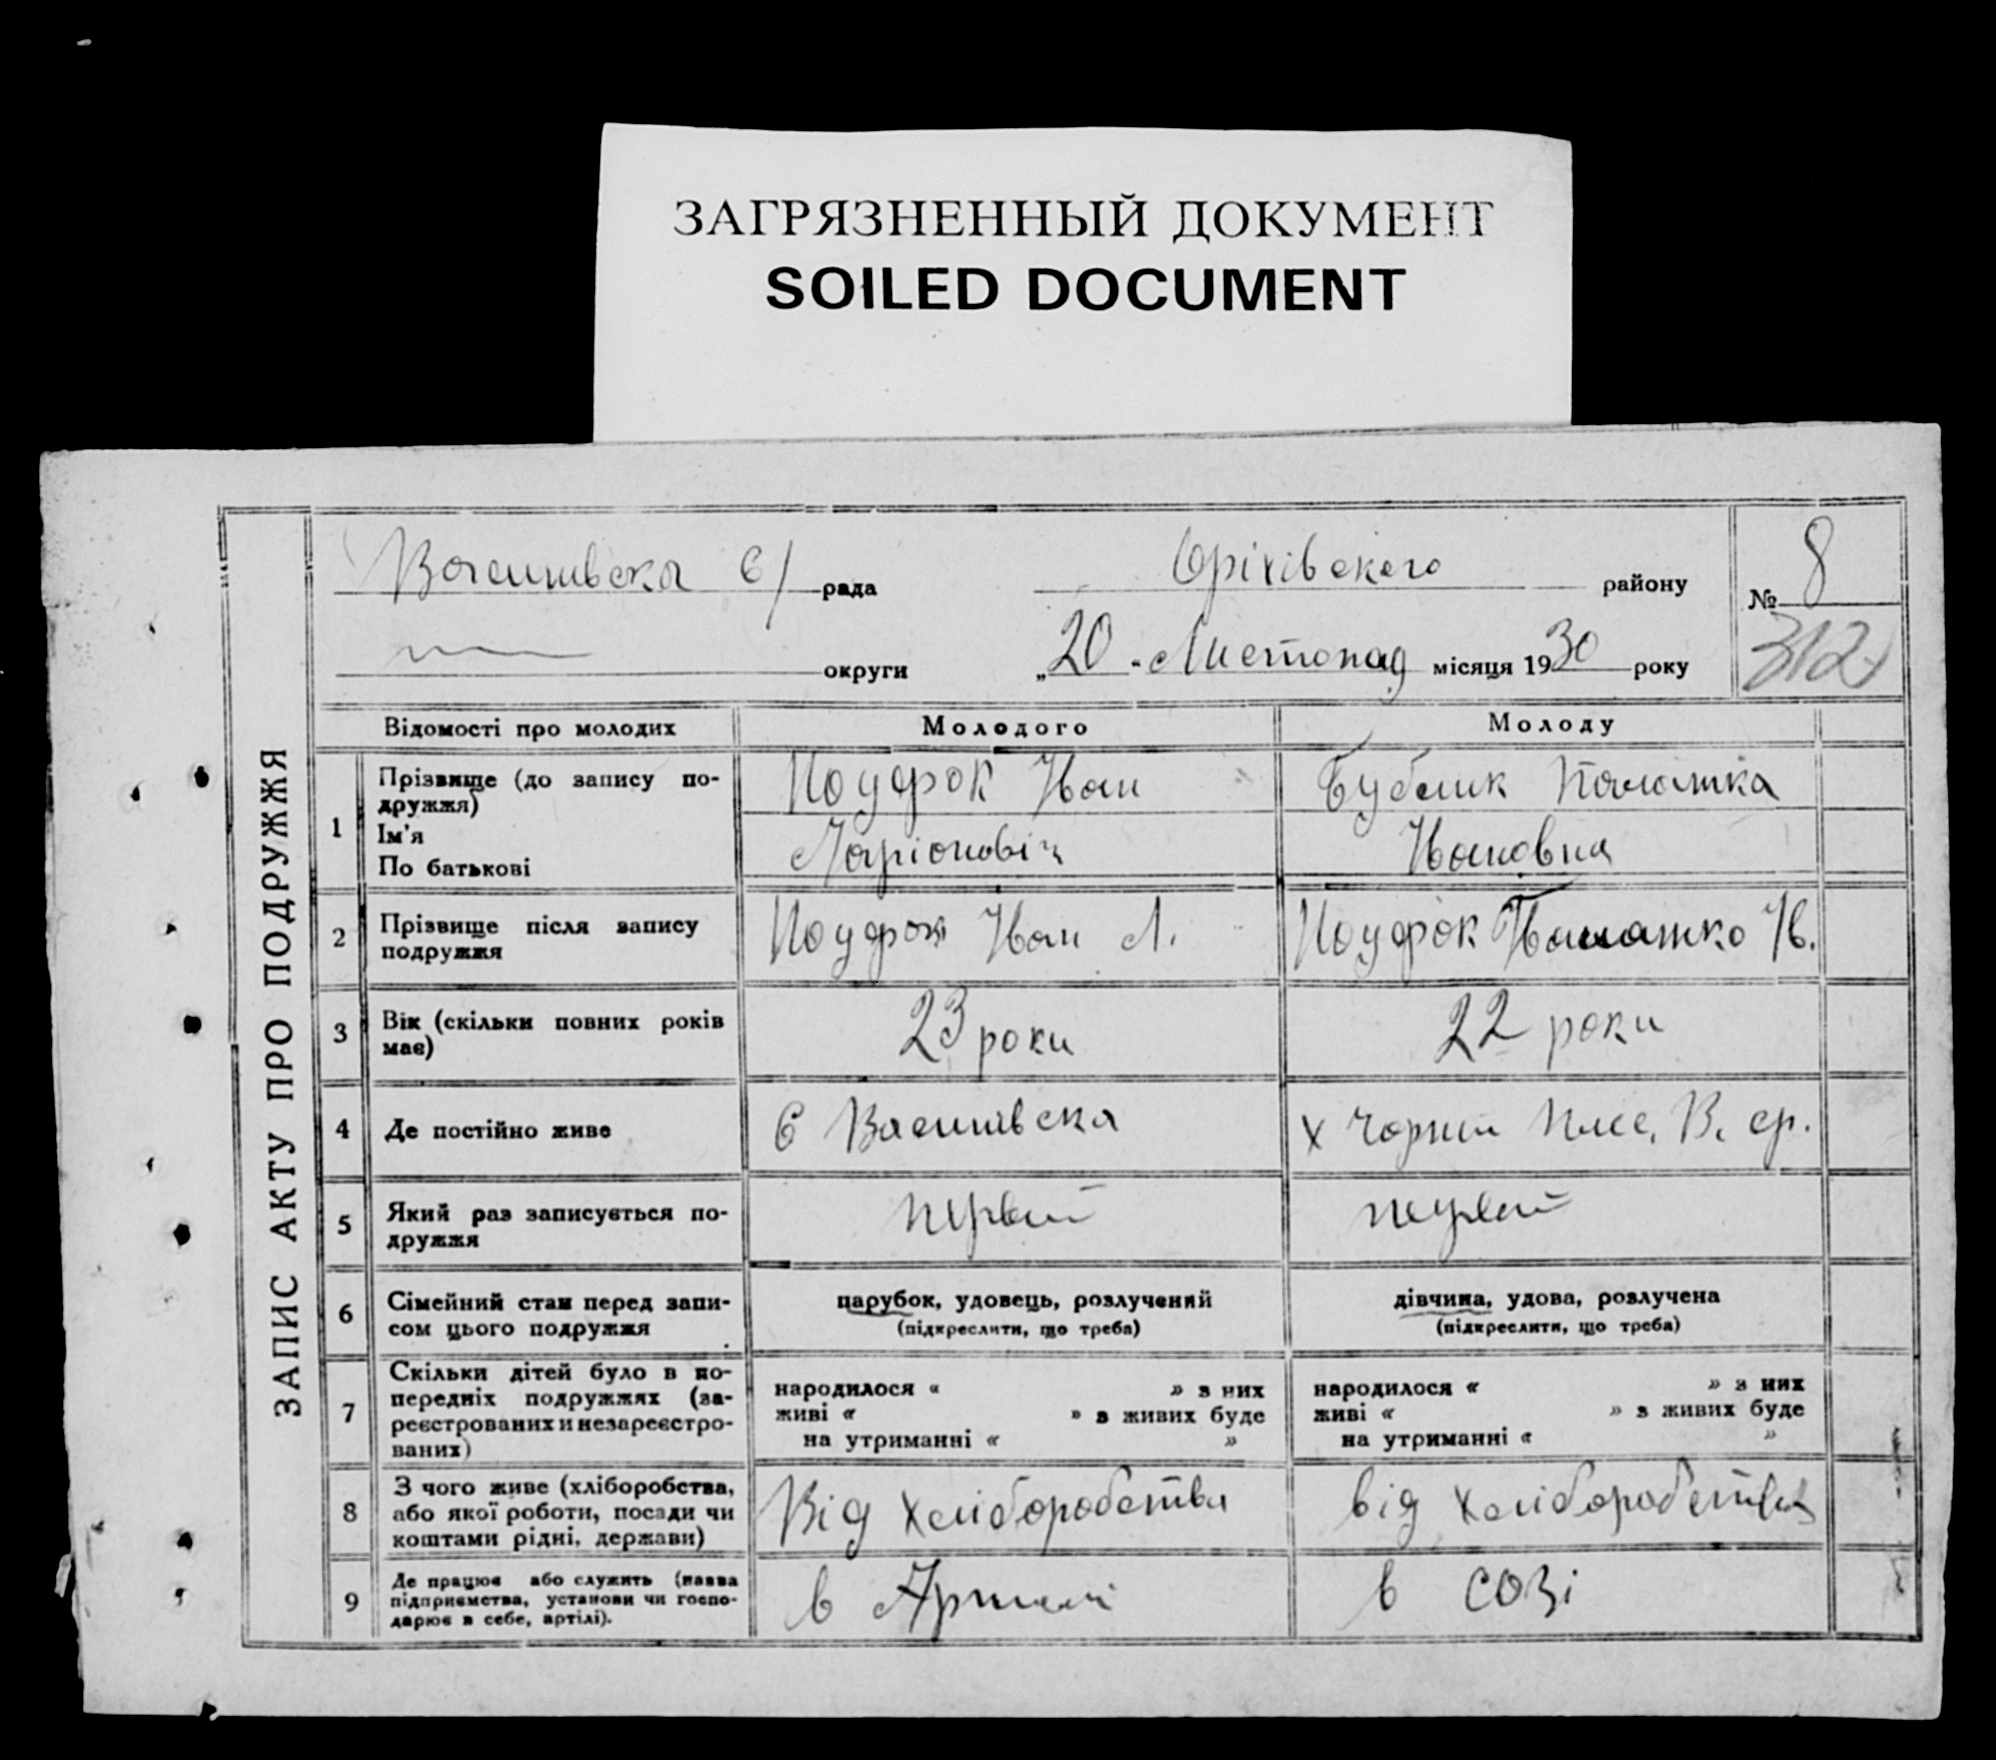 ЗАГРЯЗНЕННЫЙ ДОКУМЕНТ
SOILED DOCUMENT
ЗАПИС АКТУ ПРО ПОДРУЖЖЯ
с/ рада
Оріхівского району
№ 8
312
округи
„20 Листопад місяця 1930 року
Відомості про молодих
Молодого
Молоду
1
Прізвище (до запису по-
дружжя)
Ім'я
По батькові
Иван
Ларіоновіч
Бублик Палажка
Ивановна
2
Прізвище після запису
подружжя
Иван Л.
И.
3
Вік (скільки повних років
має)
23 роки
22 роки
4
Де постійно живе
с
х Чорний В. ср.
5
Який раз записується по-
дружжя
первий
первий
6
Сімейний стан перед запи-
сом цього подружжя
парубок, удовець, розлучений
(підкреслити, що треба)
дівчина, удова, розлучена
(підкреслити, що треба)
7
Скільки дітей було в по-
передніх подружжях (за-
реєстрованих и незареєстро-
ваних)
народилося « » з них
живі « » з живих буде
на утриманні « »
народилося « » з них
живі « » з живих буде
на утриманні « »
8
З чого живе (хліборобства,
або якої роботи, посади чи
коштами рідні, держави)
Від хліборобства
від хліборобства
9
Де працює або служить (назва
підприємства, установи чи госпо-
дарює в себе, артілі).
в Артилі
в СОЗі